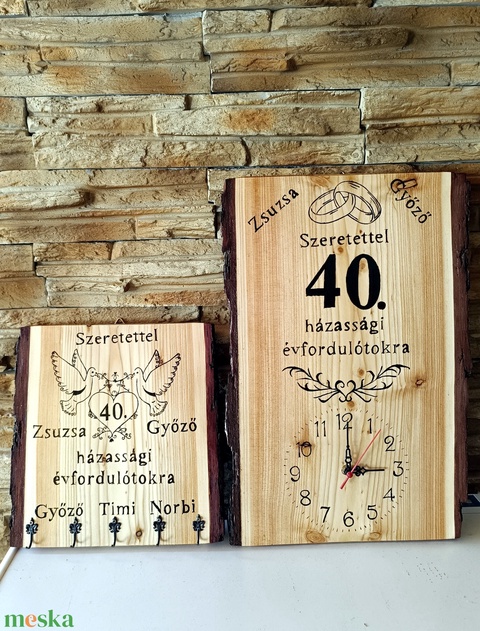 Szeretettel
40.
Zsuzsa Győző
házassági
évfordulótokra
Győző Timi Norbi
Zsuzsa Győző
Szeretettel
40.
házassági
évfordulótokra
12
11
10
9
8
7
6
5
4
3
2
1
meska